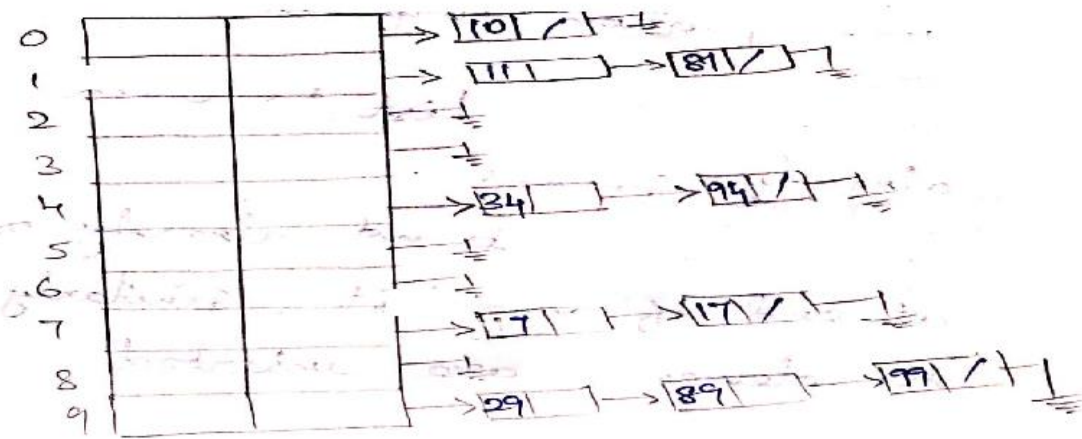 0 10
1 11 81
2
3
4 34 94
5
6
7 7 17
8
9 29 89 99